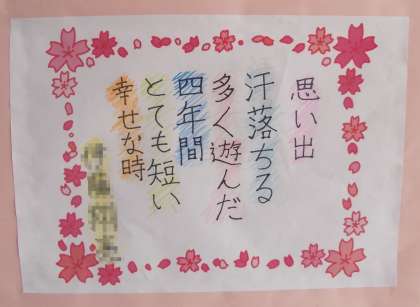 思い出
汗落ちる
多く遊んだ
四年間
とても短い
幸せな時